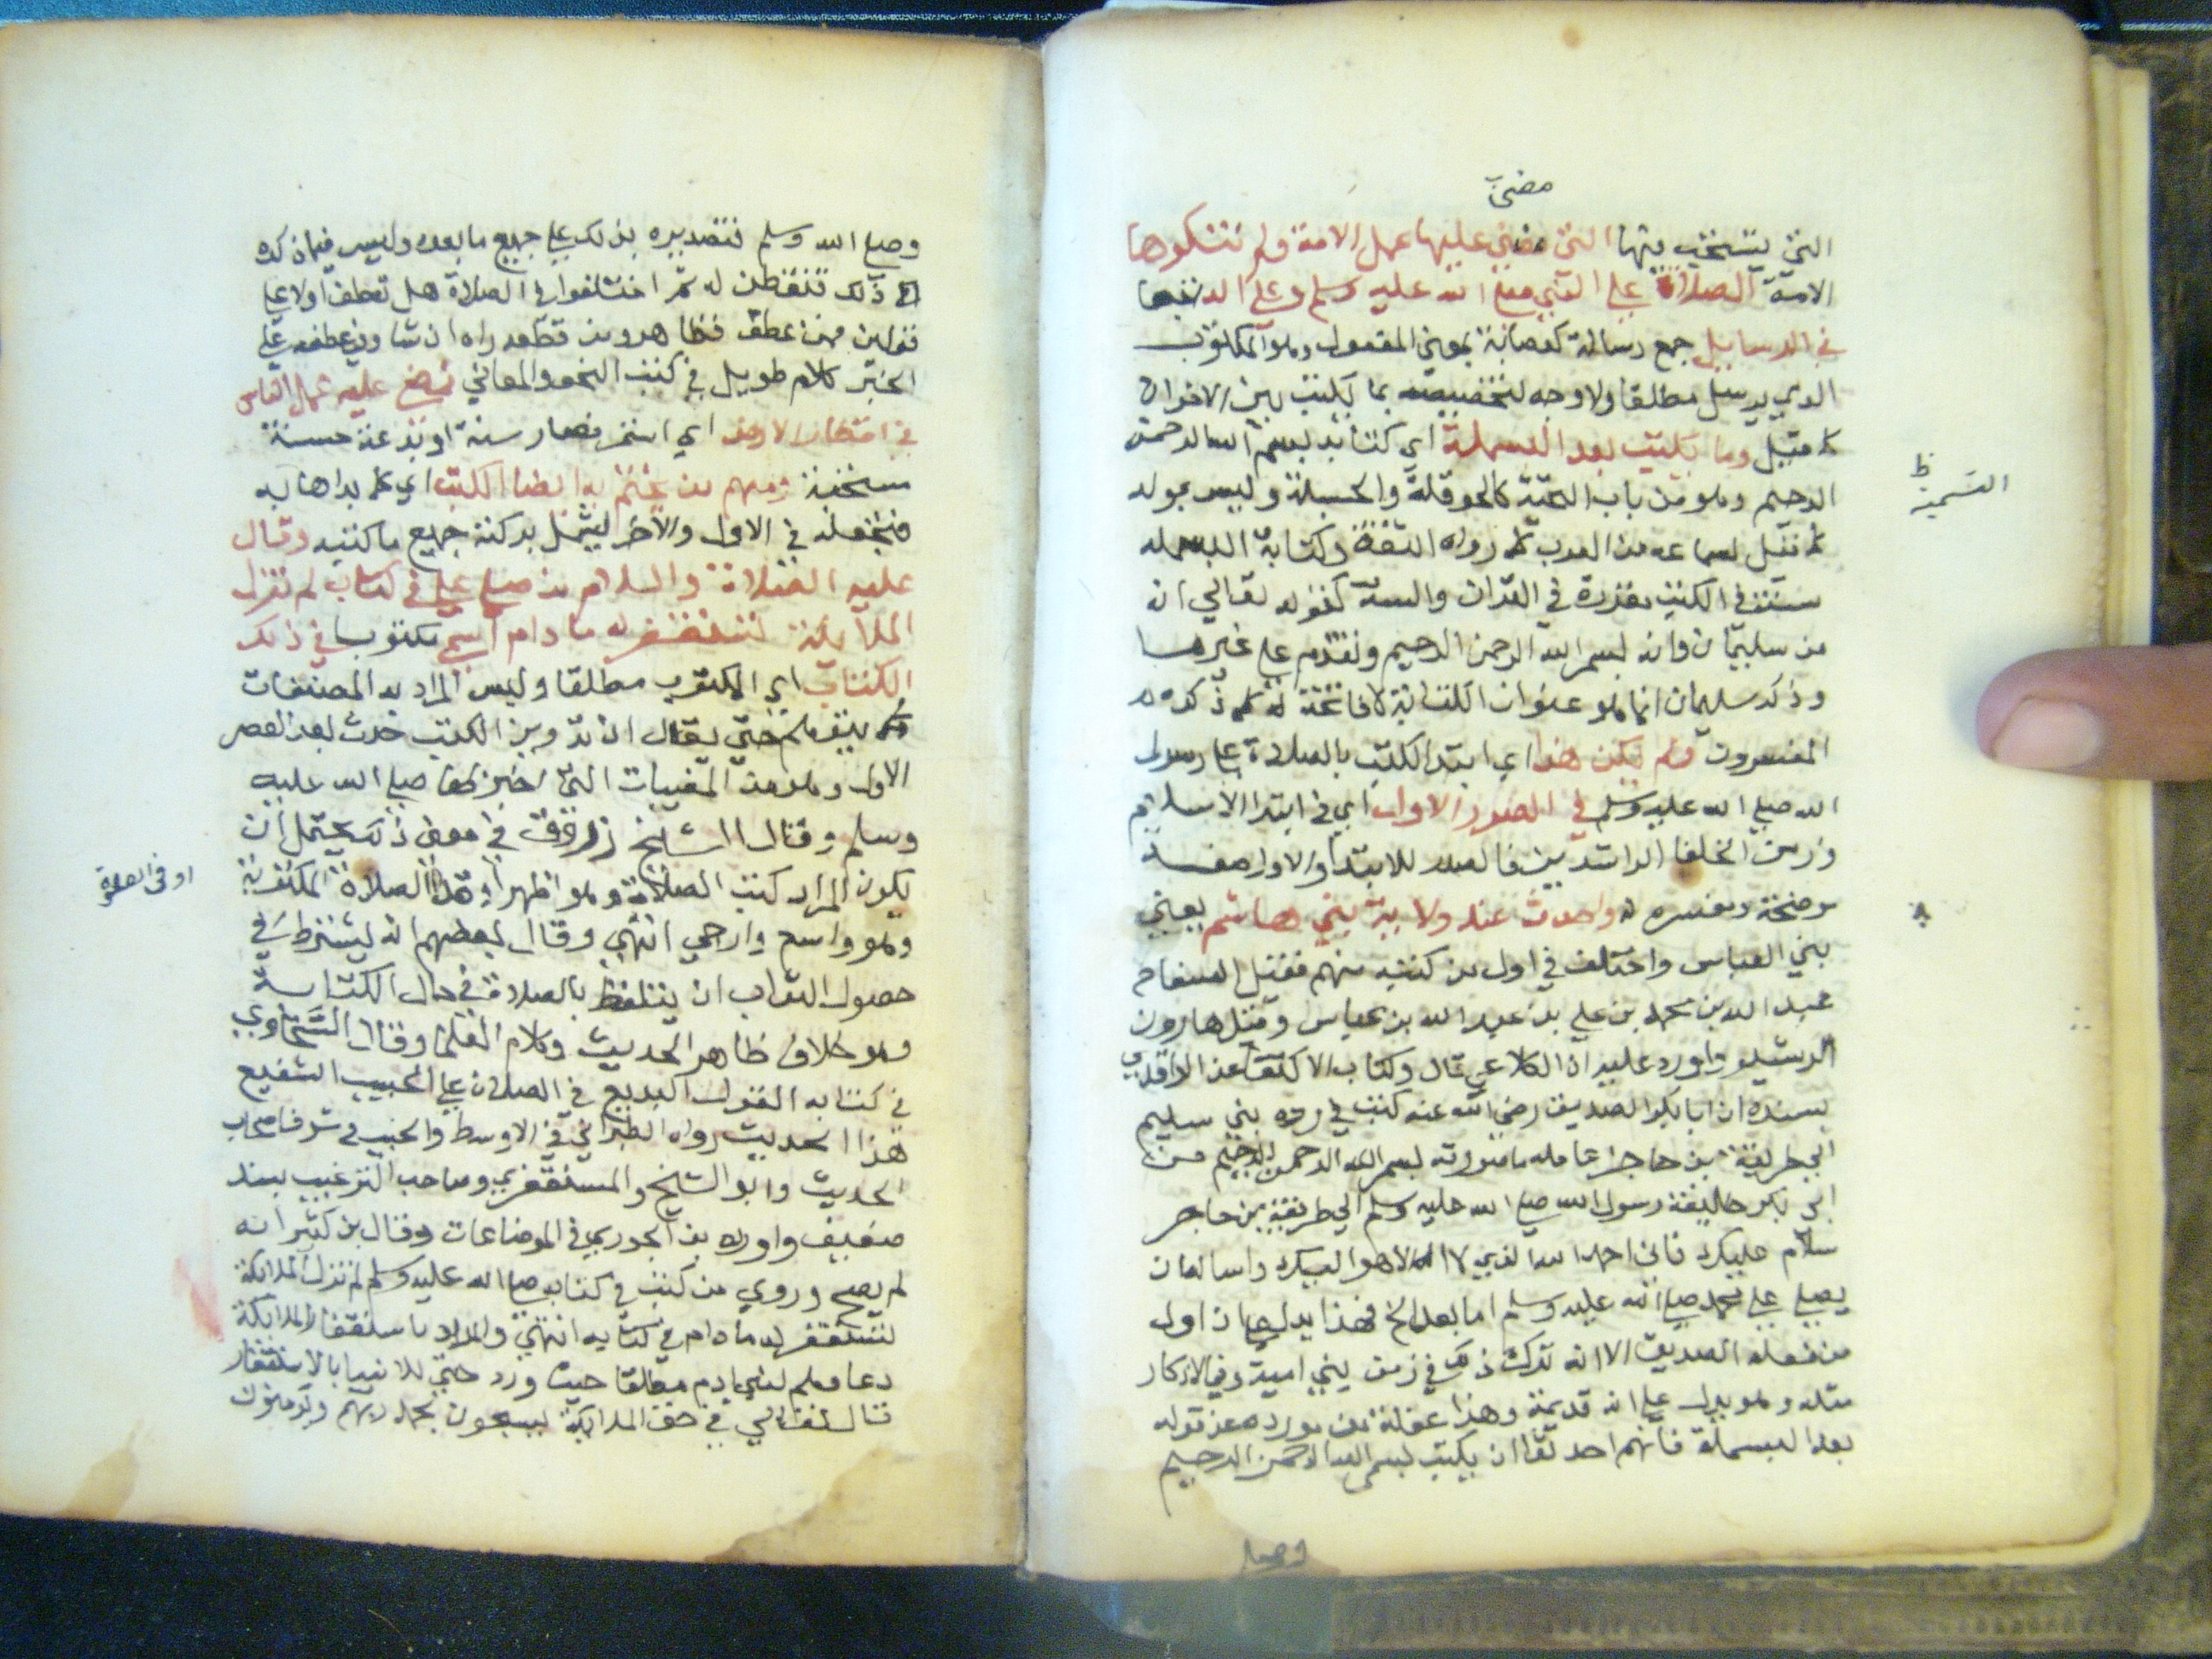 مضى
التي يستحب فيها التي مضى عليها عمل الامة ولم تنكرها
الامة الصلاة على النبي صلى الله عليه وسلم وعلى اله
في الرسايل جمع رسالة كعصابة بمعنى المفعول وهو المكتوب
الذي يرسل مطلقا ولا وجه لتخصيصه بما يكتب بين الاخوان
كما قيل وما يكتب بعد البسملة اي كتابة بسم الله الرحمن
الرحيم وهو من باب النحت كالحوقلة والحسبلة وليس بمولد
كما قيل لسماعه من العرب كما رواه الثقة وكتابة البسمله
سنة في الكتب مقررة في القران والسنة كقوله تعالى انه
من سليمان وانه بسم الله الرحمن الرحيم وتقدم على غيرها
وذكر سليمان انما هو عنوان الكتاب لا فاتحته له كما ذكره
المفسرون ولم يكن هذا اي ابتدا الكتب بالصلاة على رسول
الله صلى الله عليه وسلم في الصدر الاول اي في ابتدا الاسلام
وزمن الخلفا الراشدين فالصدر للابتدا والاول صفة
موضحة ومفسره له واحدث عند ولاية بني هاشم يعني
بني العباس واختلف في اول من كتبه منهم فقيل السفاح
عبد الله بن محمد بن علي بن عبد الله بن عباس وقيل هارون
الرشيد واورد عليه ان الكلاعي قال وكتاب الاكتفا عن الواقدي
بسنده ان ابا بكر الصديق رضي الله عنه كتب في ردة بني سليم
الى طريفة بن حاجز عامله ما صورته بسم الله الرحمن الرحيم من
ابي بكر خليفة رسول الله صلى الله عليه وسلم الى طريفة بن حاجر
سلام عليك فاني احمد الله الذي لا اله الا هو اليك واساله ان
يصلي على محمد صلى الله عليه وسلم اما بعد الخ فهذا يدل على ان اول
من فعله الصديق الا انه ترك ذلك في زمن بني امية وفي الاذكار
مثله وهو يدل على انه قديمة وهذا غفلة ممن اورده عن قوله
بعد البسملة فانهم احدثوا ان يكتب بسم الله الرحمن الرحيم
وصلى
التسمية ظ
وصلى الله وسلم فتصديره بذلك على جميع ما بعده وليس فيما ذكره
ذلك فتفطن له ثم اختلفوا في الصلاة هل تعطف اولا على
قولين فمن عطف فظاهر ومن قطعه راه انشا وفي عطفه على
الخبر كلام طويل في كتب النحو والمعاني فمضى عليه عمل الناس
في اقطار الارض اي استمر فصار سنة او بدعة حسنة
مستحبة ومنهم من يختم به ايضا الكتب اي كما بداها به
فيجعله في الاول والاخر ليشمل بركته جميع ما كتبه وقال
عليه الصلاة والسلام من صلى علي في كتاب لم تزل
الملائكة تستغفر له ما دام اسمي مكتوبا في ذلك
الكتاب اي المكتوب مطلقا وليس المراد به المصنفات
كما يتوهم حتى يقال ان تدوين الكتب حدث بعد العصر
الاول وهو من المغيبات التي اخبر بها صلى الله عليه
وسلم وقال الشيخ زروق في معنى ذلك يحتمل ان
يكون المراد كتب الصلاة وهو اظهر او قراة الصلاة المكتوبة
وهو واسع وارجى انتهى وقال بعضهم انه يشترط في
حصول الثواب ان يتلفظ بالصلاة في حال الكتابة
وهو خلاف ظاهر الحديث وكلام العلما وقال السخاوي
في كتابه القول البديع في الصلاة على الحبيب الشفيع
هذا الحديث رواه الطبراني في الاوسط والخطيب في شرف اصحاب
الحديث وابو الشيخ والمستغفري وصاحب الترغيب بسند
ضعيف واورده بن الجوزي في الموضوعات وقال بن كثير انه
لم يصح وروي من كتب في كتابه صلى الله عليه وسلم لم تزل الملائكة
تستغفر له ما دام في كتابه انتهى والمراد باستغفار الملائكة
دعاوهم لبني ادم مطلقا حيث ورد حتى للانبيا بالاستغفار
قال تعالى في حق الملائكة يسبحون بحمد ربهم ويومنون
او في الصلاة